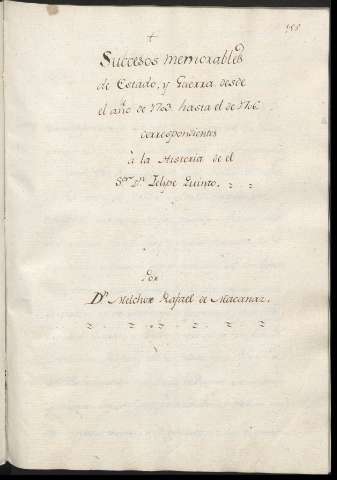 +
Succesos memorables
de Estado, y Guerra desde
el año de 1703 hasta el de 1706
correspondientes
à la Historia de el
Sor. Dn. Felipe Quinto.
Por
Dn. Melchor Rafael de Macanaz.